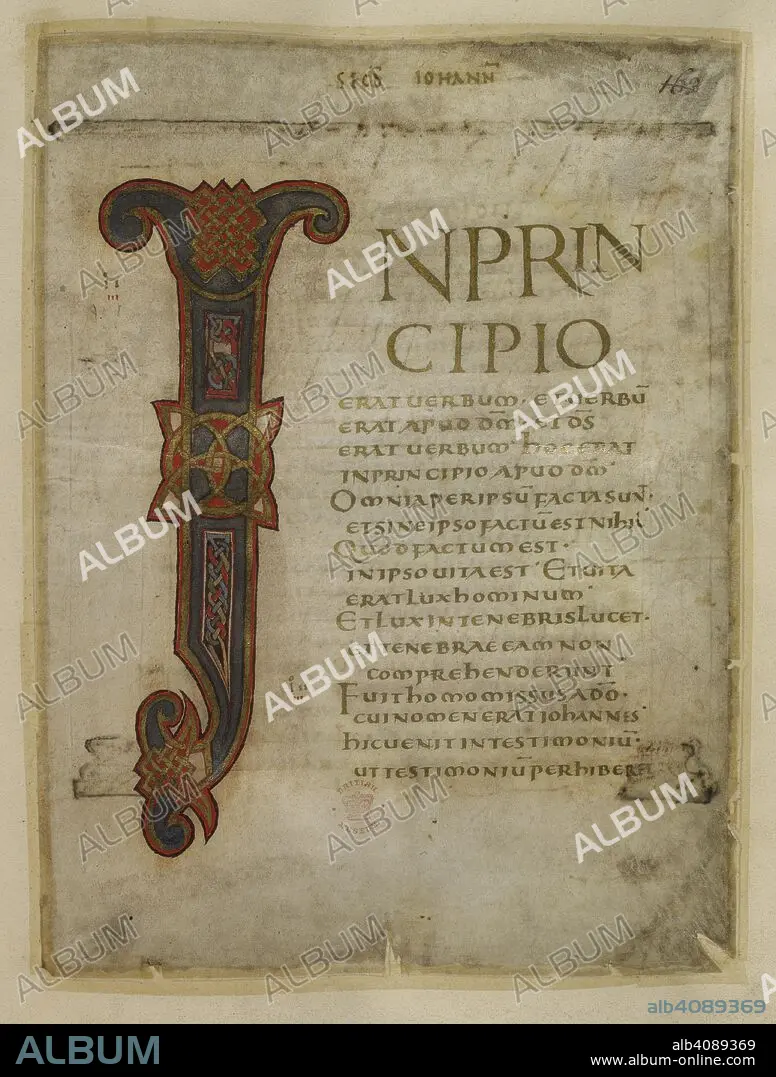 SECD̄ IOHANN̄
162
INPRIN
CIPIO
ERAT UERBUM · ET UERBŪ
ERAT APUD DM̄ · ET DS̄
ERAT UERBUM · HOC ERAT
IN PRINCIPIO APUD DM̄
OMNIA PER IPSŪ FACTA SUNT ·
ET SINE IPSO FACTŪ EST NIHIL
QUOD FACTUM EST ·
IN IPSO UITA EST · ET UITA
ERAT LUX HOMINUM ·
ET LUX IN TENEBRIS LUCET ·
ET TENEBRAE EAM NON
COMPREHENDERUNT
FUIT HOMO MISSUS A DŌ ·
CUI NOMEN ERAT IOHANNES
HIC UENIT IN TESTIMONIŪ ·
UT TESTIMONIŪ PERHIBERET
BRITISH
MUSEUM
ALBUM
alb4089369
ALBUM
alb4089369
www.album-online.com